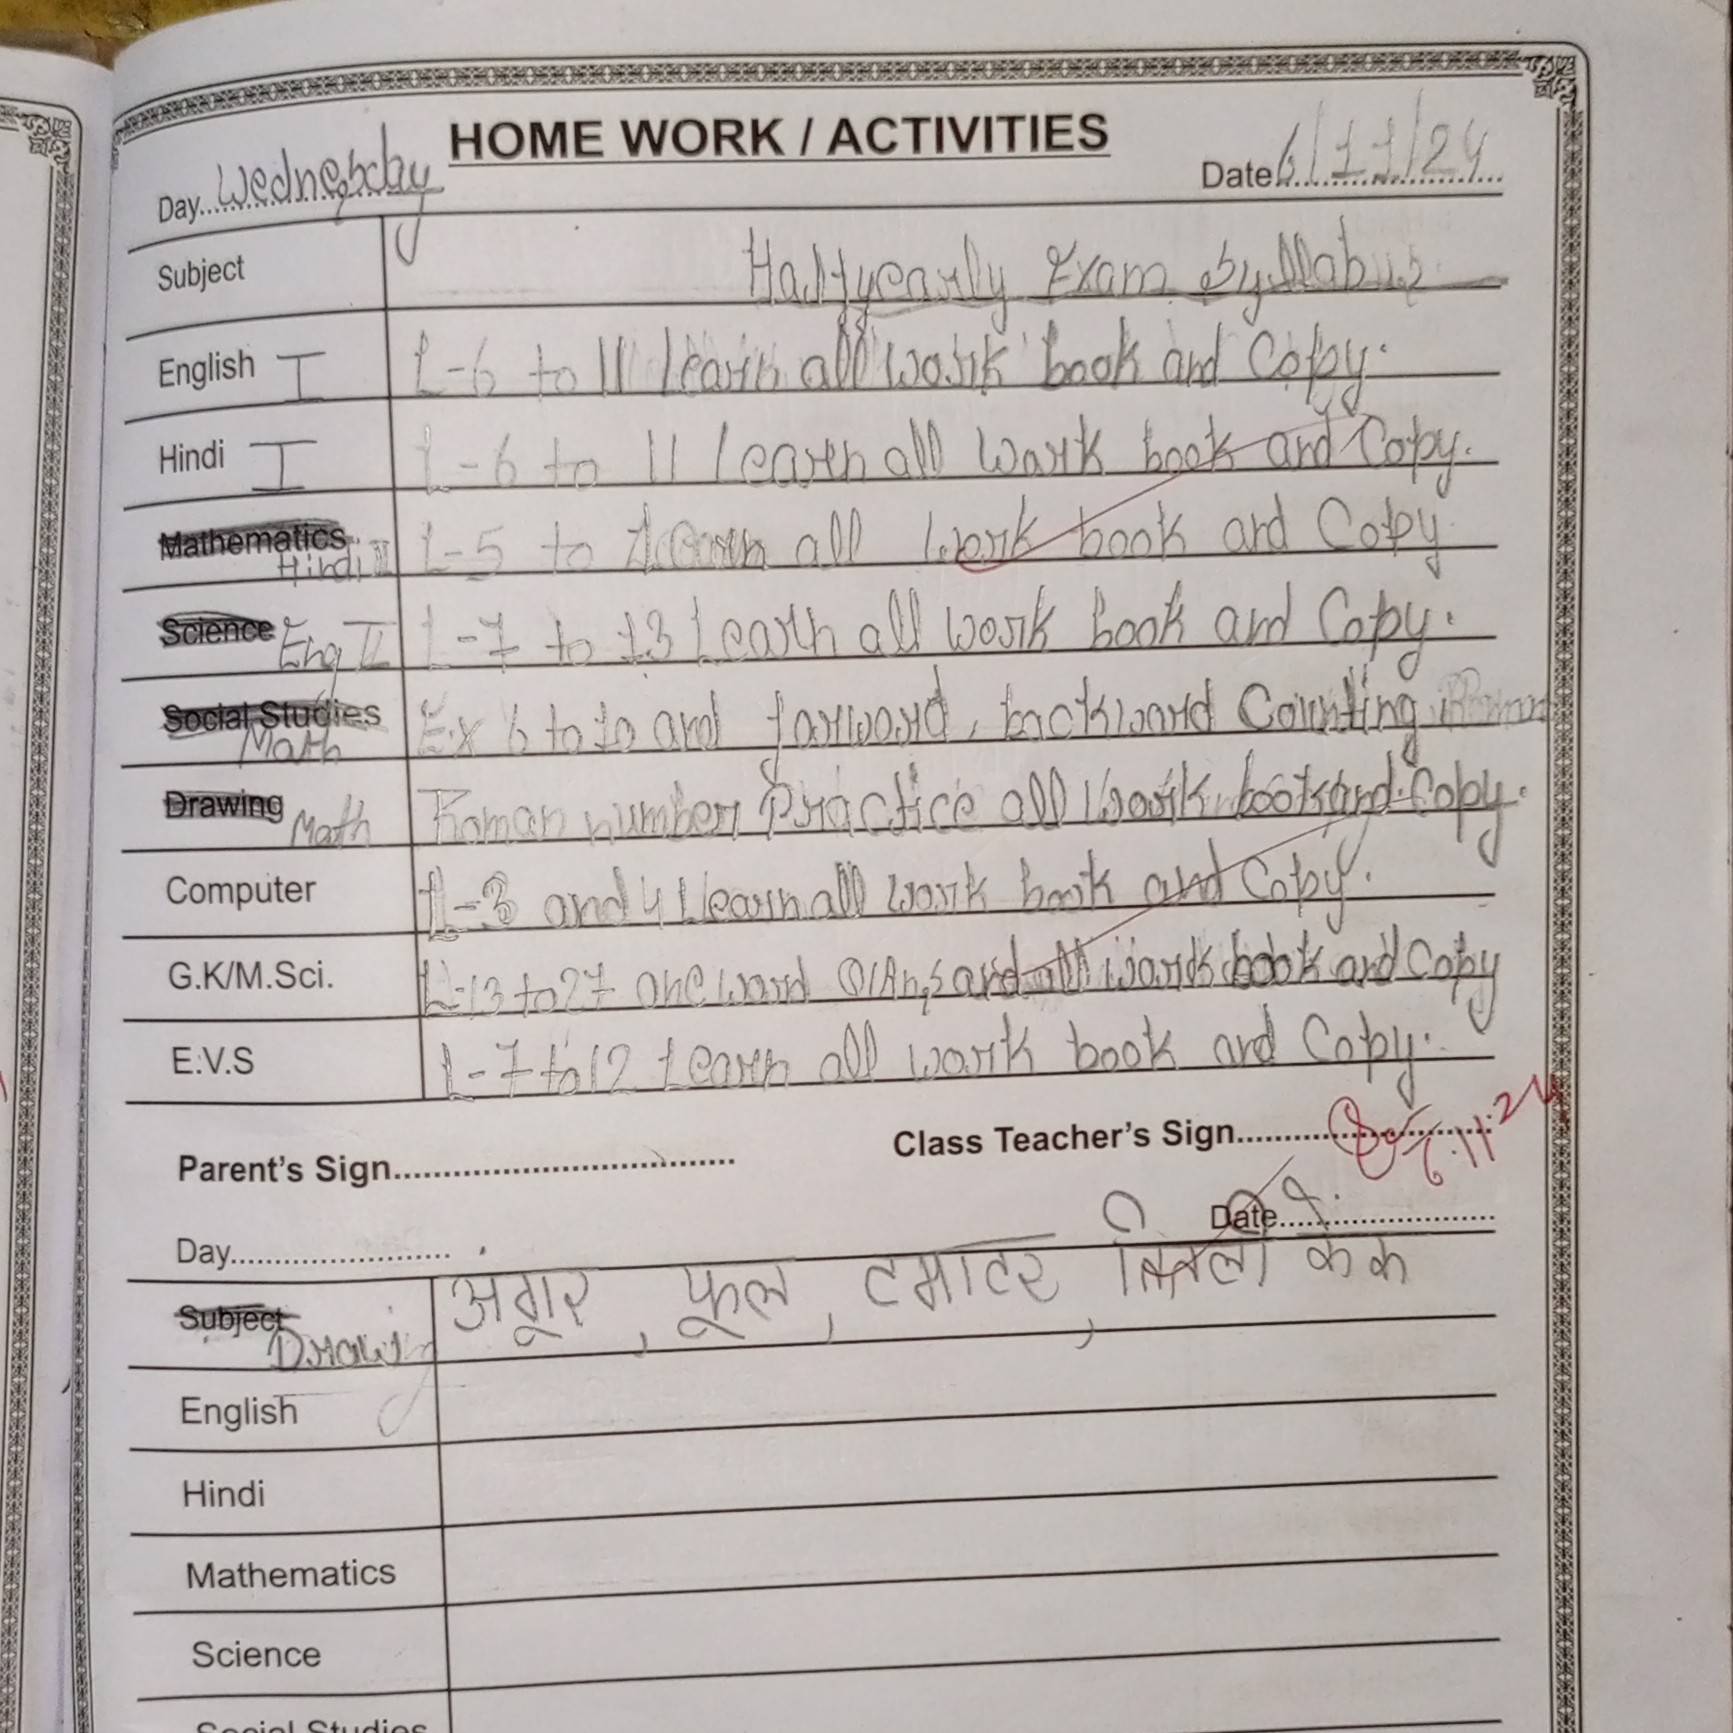 HOME WORK / ACTIVITIES
Day Wednesday Date 6/11/24
Subject Halfyearly Exam Syllabus
English I L-6 to 11 learn all work book and Copy.
Hindi I L-6 to 11 learn all work book and Copy.
Mathematics Hindi II L-5 to learn all work book and Copy
Science Eng II L-7 to 13 Learn all work book and Copy.
Social Studies Math Ex 6 to 10 and forword, backword Counting
Drawing Math Roman number Practice all work book and Copy.
Computer L-3 and 4 Learn all work book and Copy.
G.K/M.Sci. L-13 to 27 one word Q/Ans and all words book and Copy
E.V.S L-7 to 12 Learn all work book and Copy.
Parent's Sign Class Teacher's Sign 6.11.24
Day Date
Subject Drawing अगूर, फूल, टमाटर, तितली केक
English
Hindi
Mathematics
Science
Social Studies